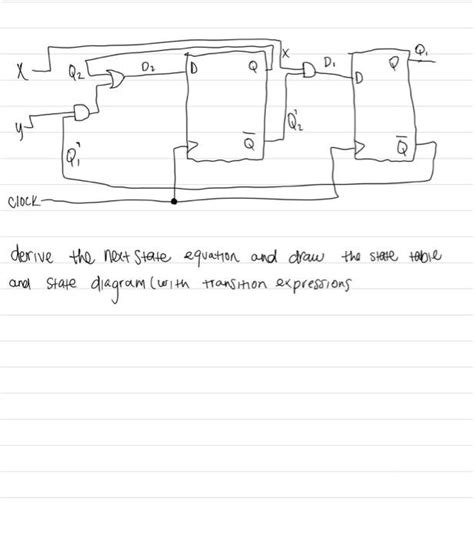 X
Q₁
X Q₂ D₂ D Q D₁ D Q
y
Q₂'
Q₁' Q̅ Q̅
clock
derive the next state equation and draw the state table
and state diagram (with transition expressions